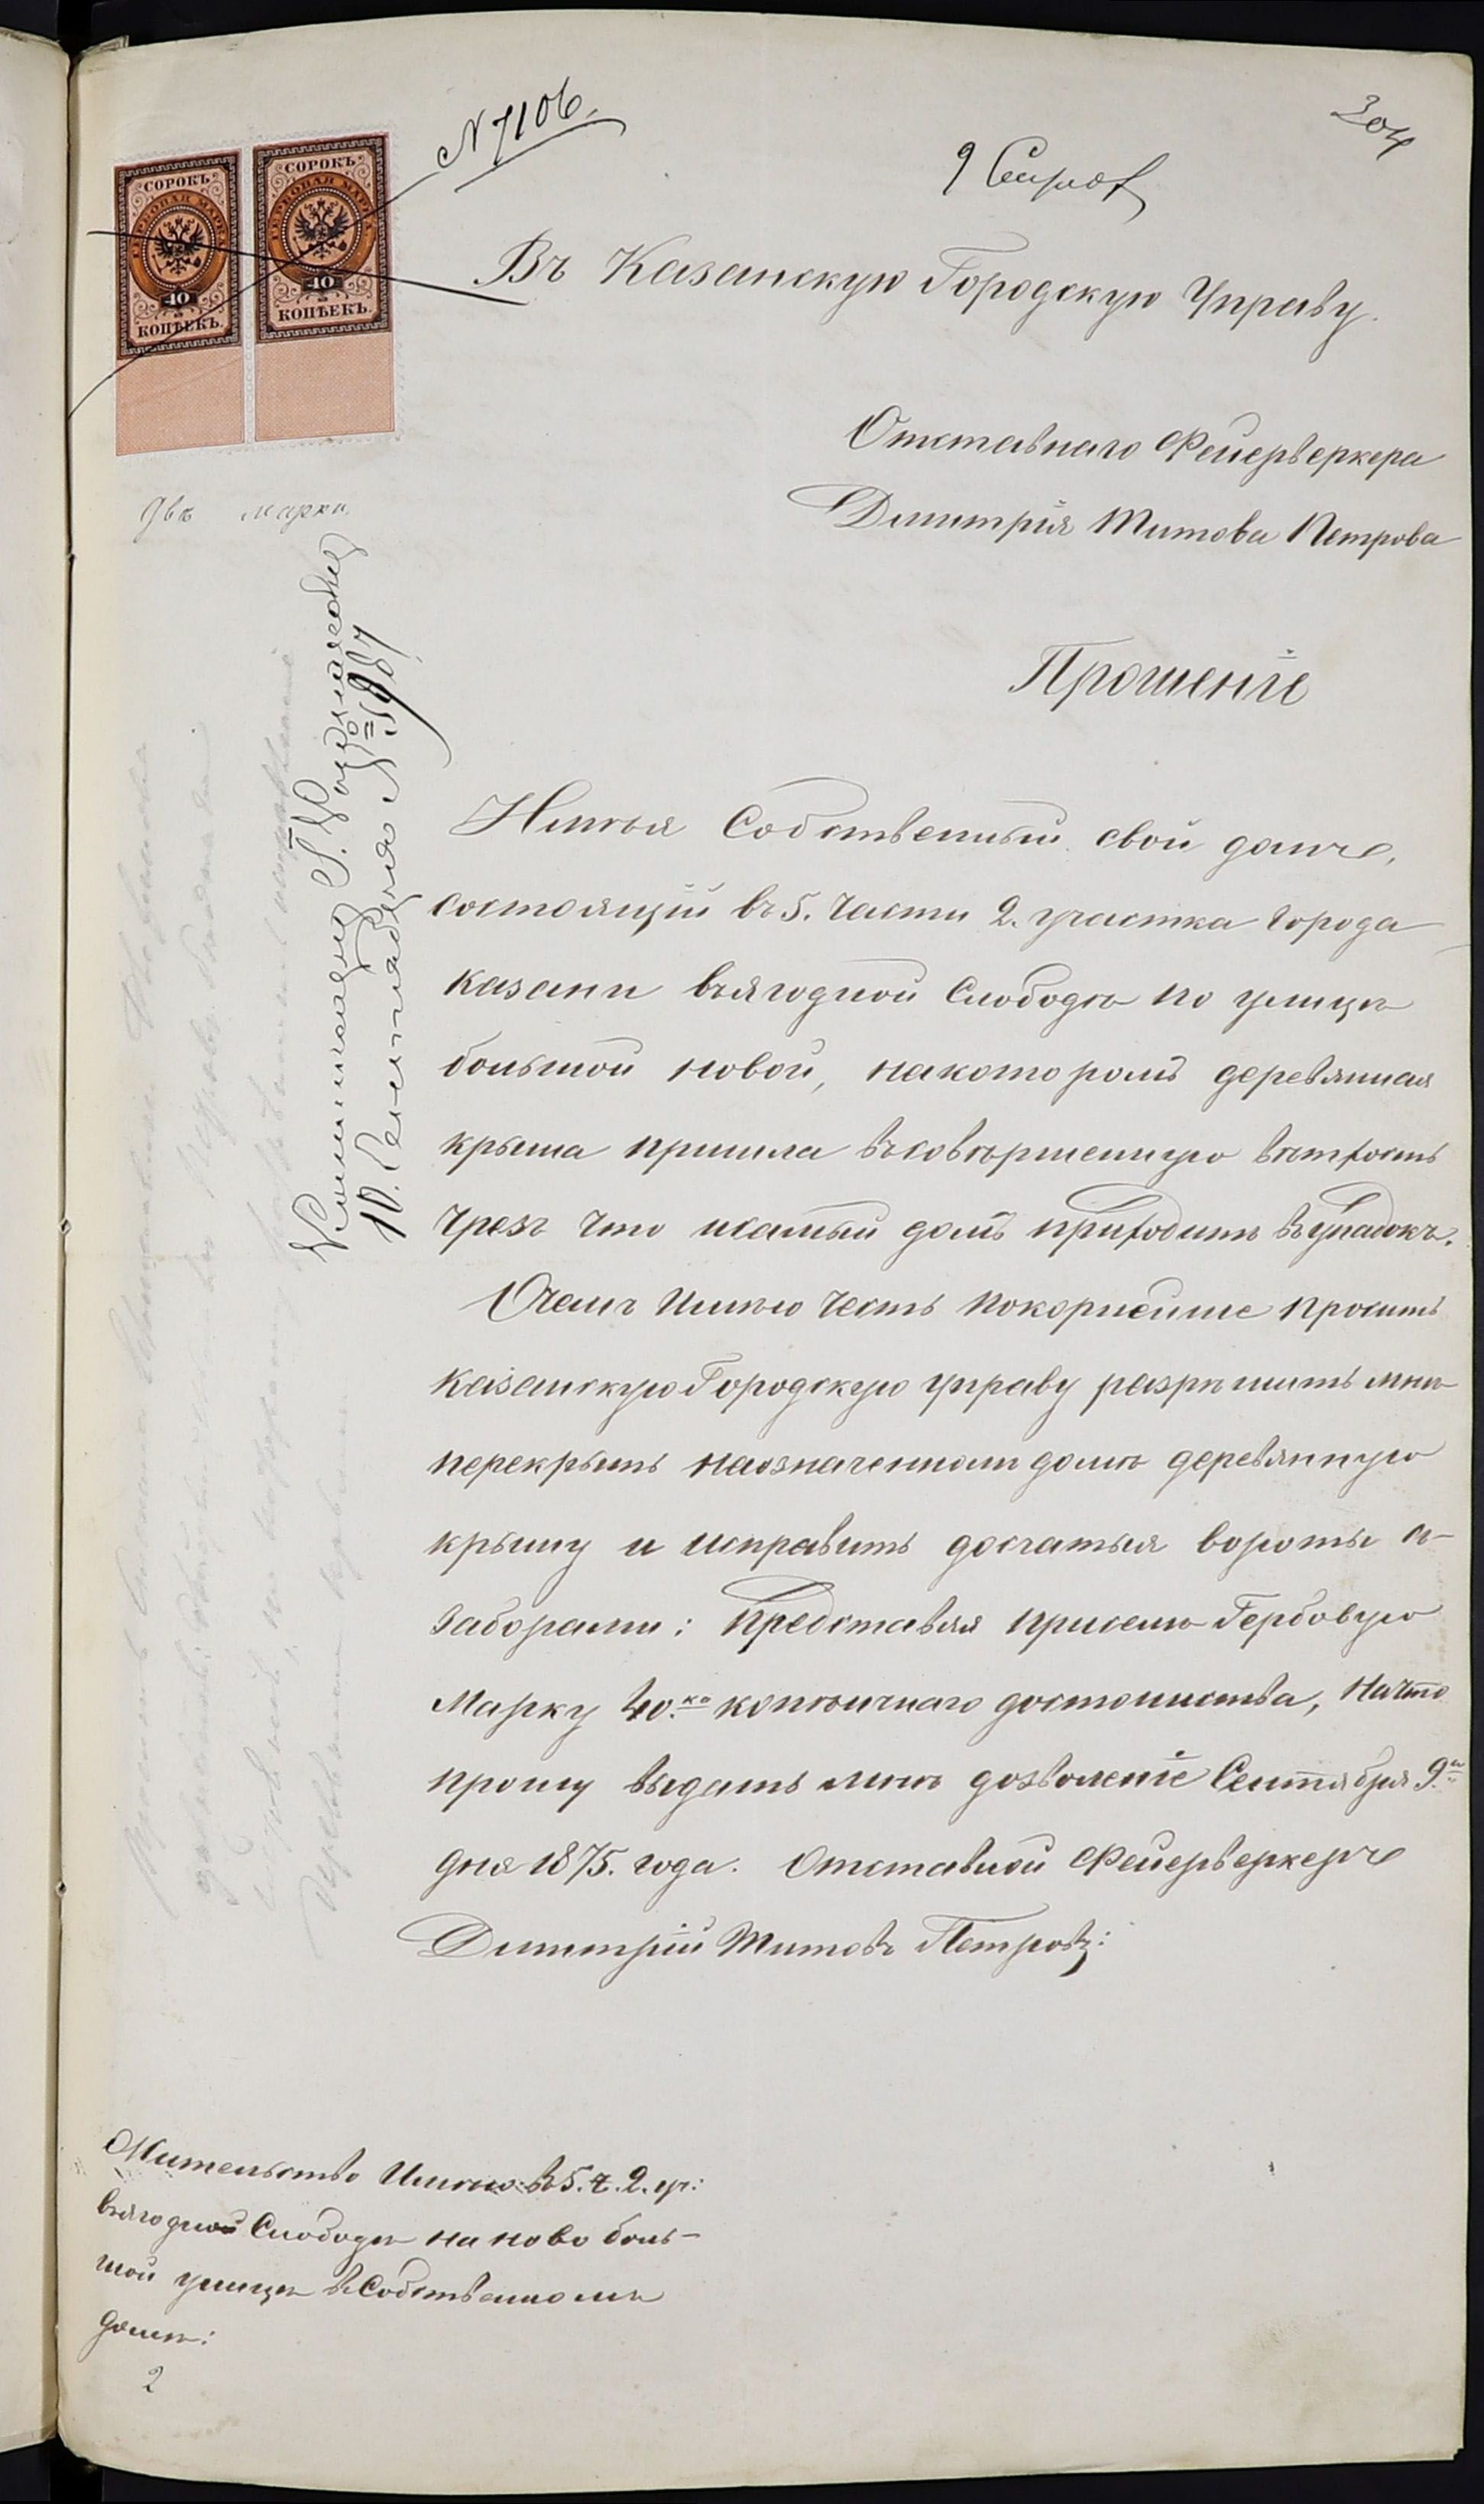 N 7106.
304
9 Сентяб
СОРОКЪ
ГЕРБОВАЯ МАРКА
40
КОПѢЕКЪ.
СОРОКЪ
ГЕРБОВАЯ МАРКА
40
КОПѢЕКЪ.
Въ Казанскую Городскую Управу.
Отставнаго Фейерверкера
Димитрія Титова Петрова
две марки
Прошеніе
10. Сентября N 5987
Имѣя Собственный свой домъ,
состоящій въ 5. Части 2. участка Города
Казани въ Ягодной Слободѣ по улицѣ
большой новой, накоторомъ деревянная
крыша пришла въ совѣршенную вѣтхость
чрезъ что исамый домъ приходитъ въ упадокъ.
О чемъ Имѣю честь покорнейше просить
Казанскую Городскую управу разрѣшить мнѣ
перекрыть наозначенномъ домѣ деревянную
крышу и исправить досчатыя вороты съ
заборами: представляя присемъ Гербовую
Марку 40.ко копѣичнаго достоинства, На что
прошу выдать мнѣ дозволеніе Сентября 9.го
дня 1875. года. Отставной Фейерверкеръ
Димитрій Титовъ Петровъ:
Жительство Имѣю въ 5. ч. 2. уч:
въ Ягодной Слободѣ на ново боль-
шой улицѣ в Собственномъ
домѣ:
2